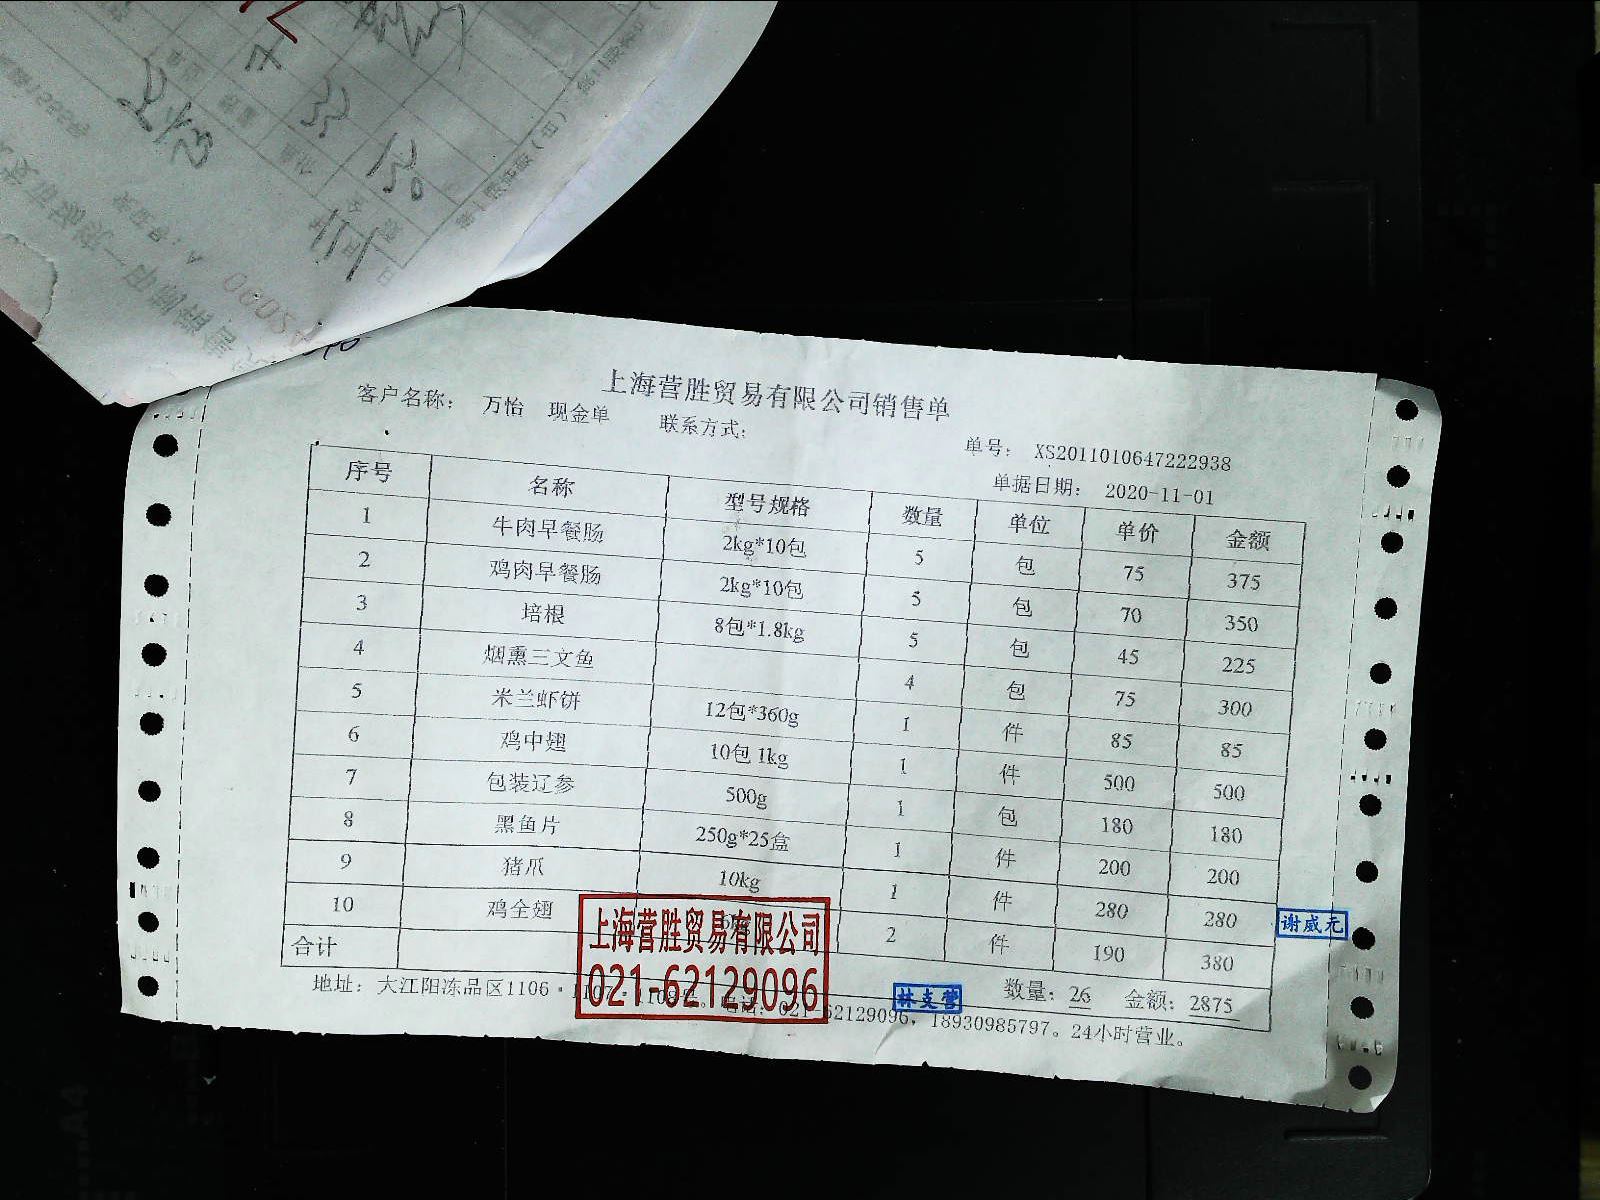 上海营胜贸易有限公司销售单
客户名称： 万怡 现金单 联系方式：
单号： XS2011010647222938
单据日期： 2020-11-01
序号 名称 型号规格 数量 单位 单价 金额
1 牛肉早餐肠 2kg*10包 5 包 75 375
2 鸡肉早餐肠 2kg*10包 5 包 70 350
3 培根 8包*1.8kg 5 包 45 225
4 烟熏三文鱼 4 包 75 300
5 米兰虾饼 12包*360g 1 件 85 85
6 鸡中翅 10包 1kg 1 件 500 500
7 包装辽参 500g 1 包 180 180
8 黑鱼片 250g*25盒 1 件 200 200
9 猪爪 10kg 1 件 280 280
10 鸡全翅 2 件 190 380
合计 数量：26 金额：2875
地址：大江阳冻品区1106·1107 1108号。电话：021-62129096，18930985797。24小时营业。
上海营胜贸易有限公司
021-62129096
林支营
谢威元